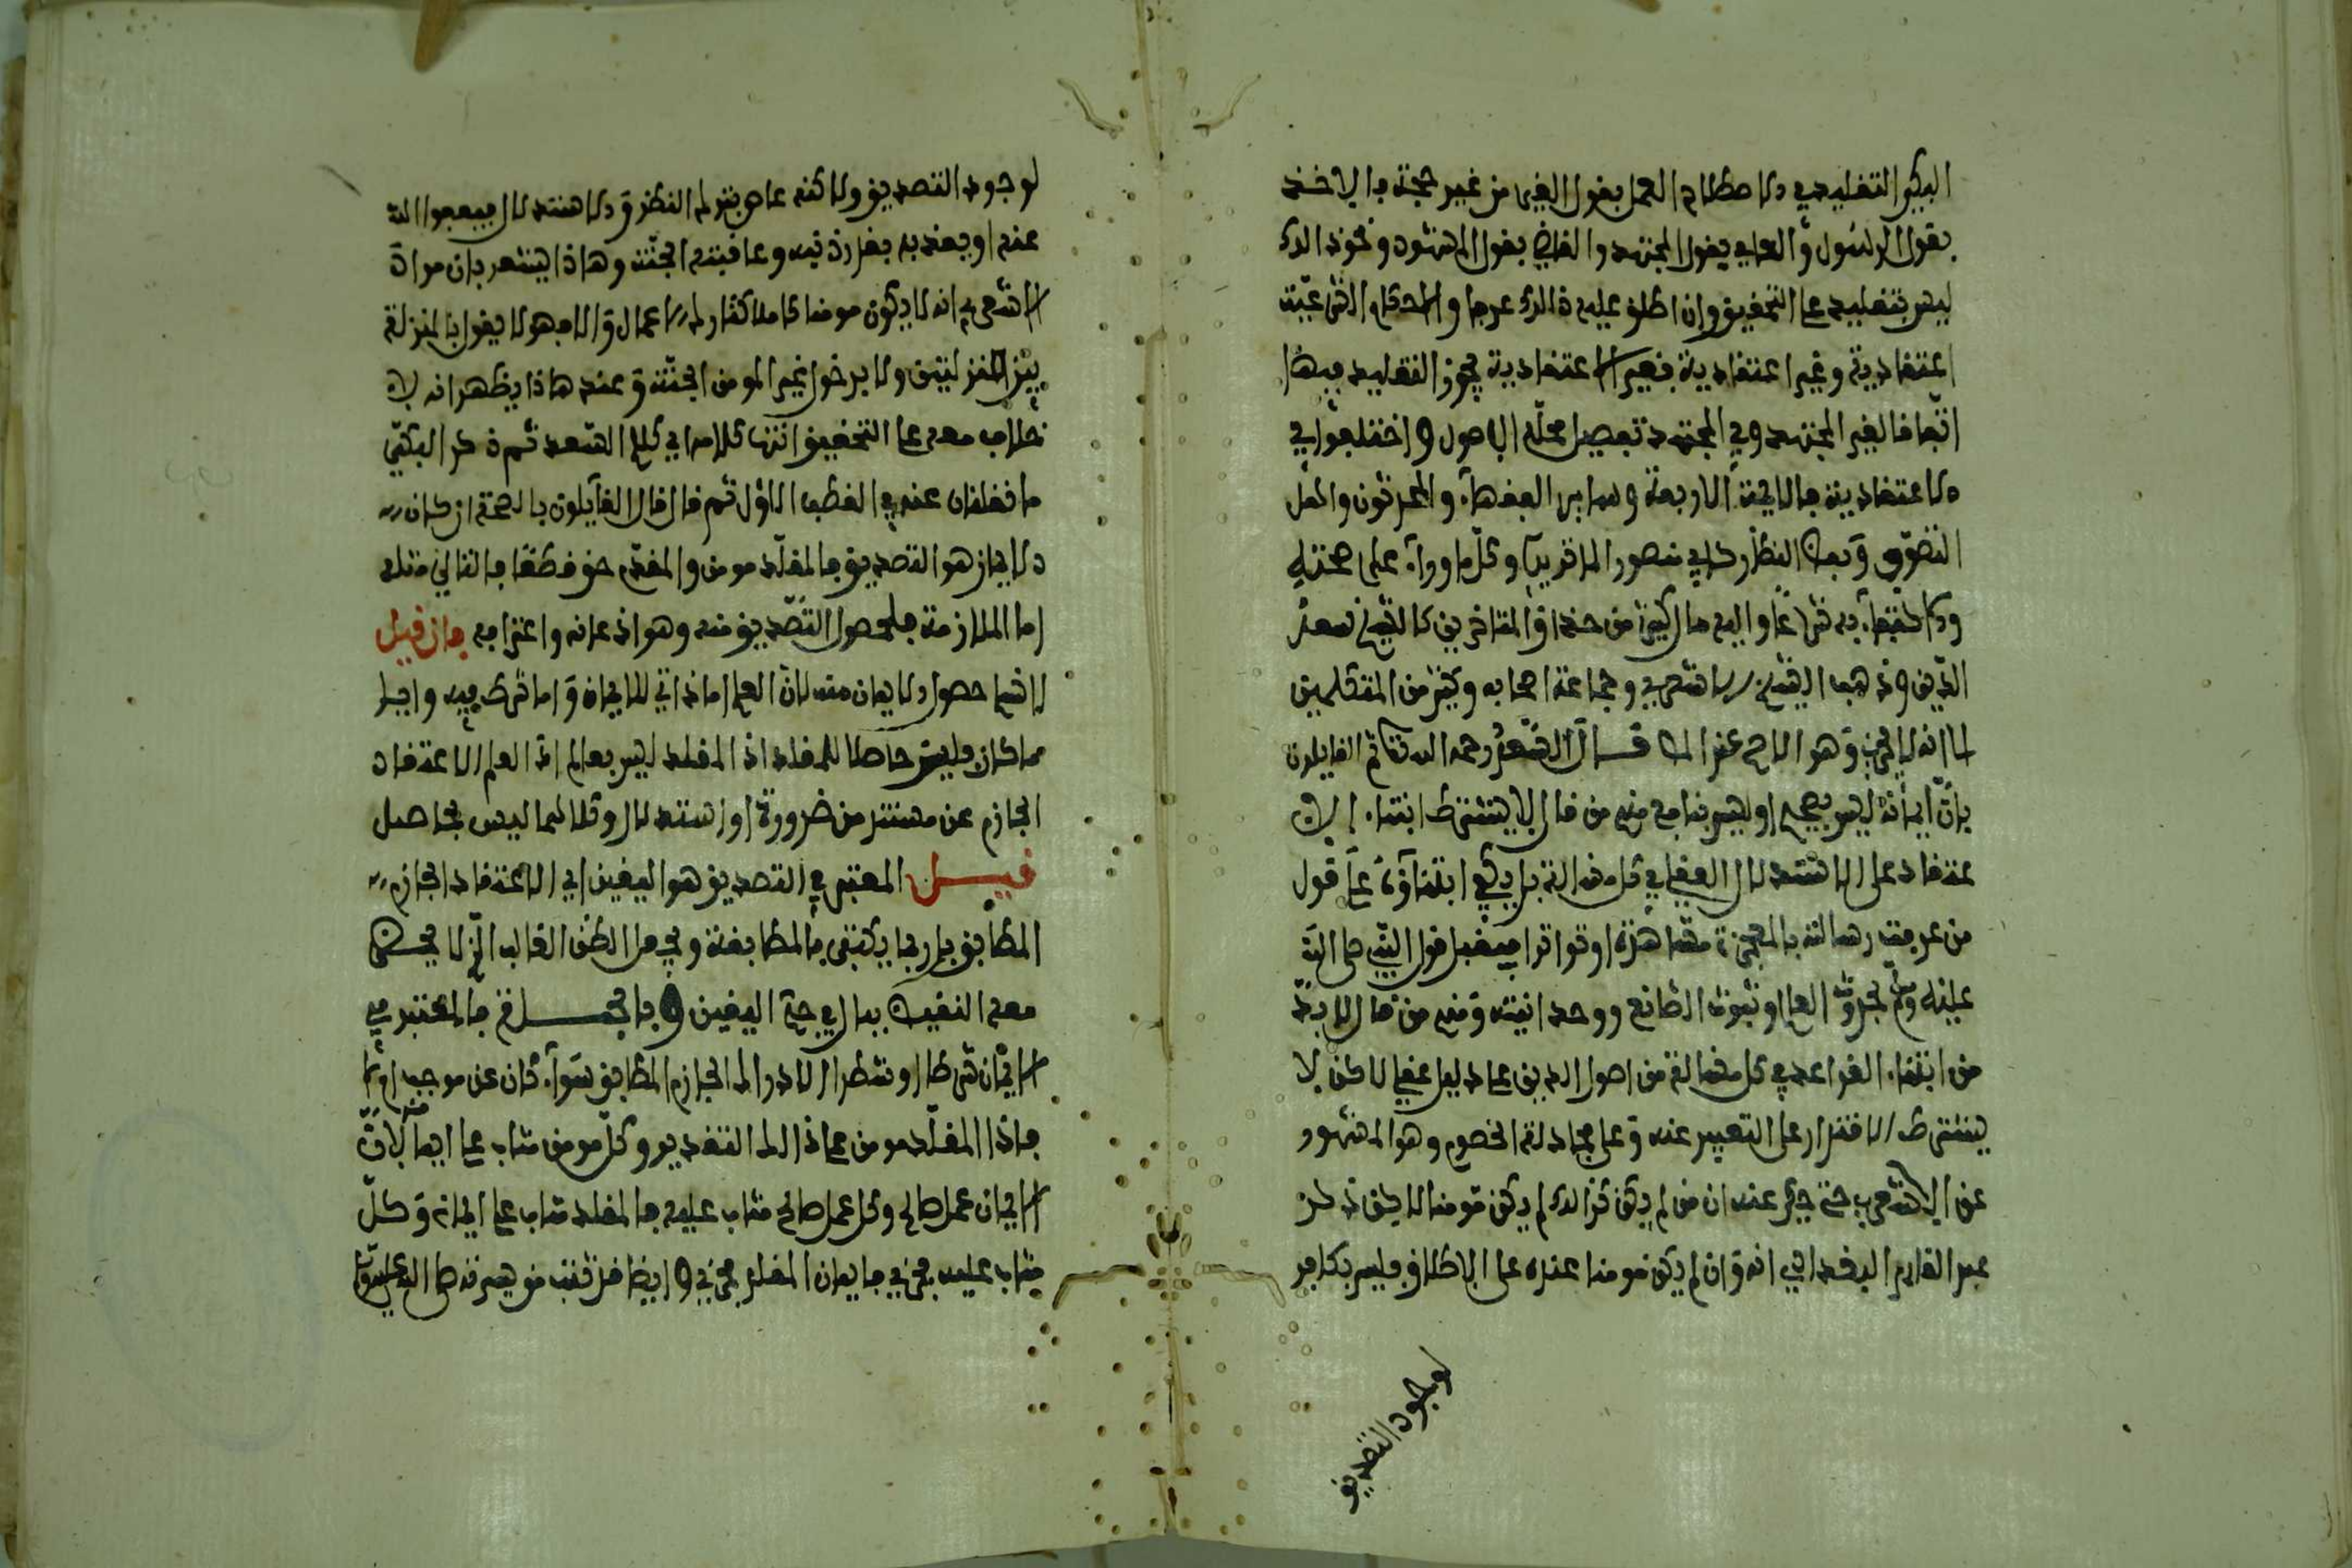 البكي التقليد في الاصطلاح العمل بقول الغير من غير حجة فالاخذ
بقول الرسول والعامي بقول المجتهد والقاضي بقول الشهود ونحو ذالك
ليس بتقليد على التحقيق وان اطلق عليه ذالك عرفا والاحكام الشرعية
اعتقادية وغير اعتقادية فغير الاعتقادية يجوز التقليد فيها
اتفاقا لغير المجتهد وفي المجتهد تفصيل محله الاصول واختلفوا في
الاعتقادية فالايمة الاربعة وساير الفقهاء والمحدثون واهل
التصوف وبعض النظار كابي منصور الماتريدي وكل ما وراء على صحته
والاكتفاء به شرعا واليه مال كثير من حذاق المتاخرين كالشيخ سعد
الدين وذهب الشيخ الاشعري وجماعة اصحابه وكثير من المتكلمين
الى انه لا يجزي وهو الاصح عند قال السعد رحمه الله ثم القايلون
بان ايمانه ليس بصحيح او ليس بنافع منهم من قال لا يشترط ابتناء الا
عتقاد على الاستدلال العقلي في كل مسالة بل يكفي ابتناؤه على قول
من عرفت رسالته بالمعجزة مشاهدة او تواترا فيقبل قول النبي صلى الله
عليه وسلم بحدوث العالم وثبوت الصانع ووحدانيته ومنهم من قال لابد
من ابتناء القواعد في كل مسالة من اصول الدين على دليل عقلي لاكن لا
يشترط الاقتدار على التعبير عنه وعلى مجادلة الخصوم وهو المشهور
عن الاشعري حتى حكي عنه ان من لم يكن كذالك لم يكن مومنا لاكن ذكر
عبد القاهر البغدادي انه وان لم يكن مومنا عنده على الاطلاق فليس بكافر
لوجود التصديق
لوجود التصديق ولاكنه عاص بترك النظر والاستدلال فيعفوا الله
عنه او يعذبه بقدر ذنبه وعاقبته الجنة وهاذا يشعر بان مراد
الاشعري انه لا يكون مومنا كاملا كتارك الاعمال والا فهو لا يقول بالمنزلة
بين المنزلتين ولا بدخول غير المومن الجنة وعند هاذا يظهر انه لا
خلاف معه على التحقيق انتها كلامه اي كلام السعد ثم ذكر البكي
ما نقلناه عنه في القطب الاول ثم قال قال القايلون بالصحة ان كان
الايمان هو التصديق فالمقلد مومن والمقدم حق قطعا فالتالي مثله
اما الملازمة فلحصول التصديق منه وهو اذعانه واعترافه فان قيل
لا نسلم حصول الايمان منه لان العلم اما ذاتي للايمان واما شرط فيه وايا
ما كان فليس حاصلا للمقلد اذ المقلد ليس بعالم اذ العلم الاعتقاد
الجازم عن مستند من ضرورة او استدلال وكلاهما ليس بحاصل
قيل المعتبر في التصديق هو اليقين اي الاعتقاد الجازم
المطابق بل ربما يكتفى بالمطابقة ويجعل الظن الغالب الذي لا يخطر
معه النقيض بالبال في حكم اليقين وبالجملة فالمعتبر في
الايمان شرطا او شطرا الادراك الجازم المطابق سواء كان عن موجب ام لا
فاذا المقلد مومن على ذالك التقدير وكل مومن مثاب على ايمانه لان
الايمان عمل صالح وكل عمل صالح مثاب عليه فالمقلد مثاب على ايمانه وكل
مثاب عليه مجزي فايمان المقلد مجزي وايضا فرتبت من سيرته صلى الله عليه وسلم